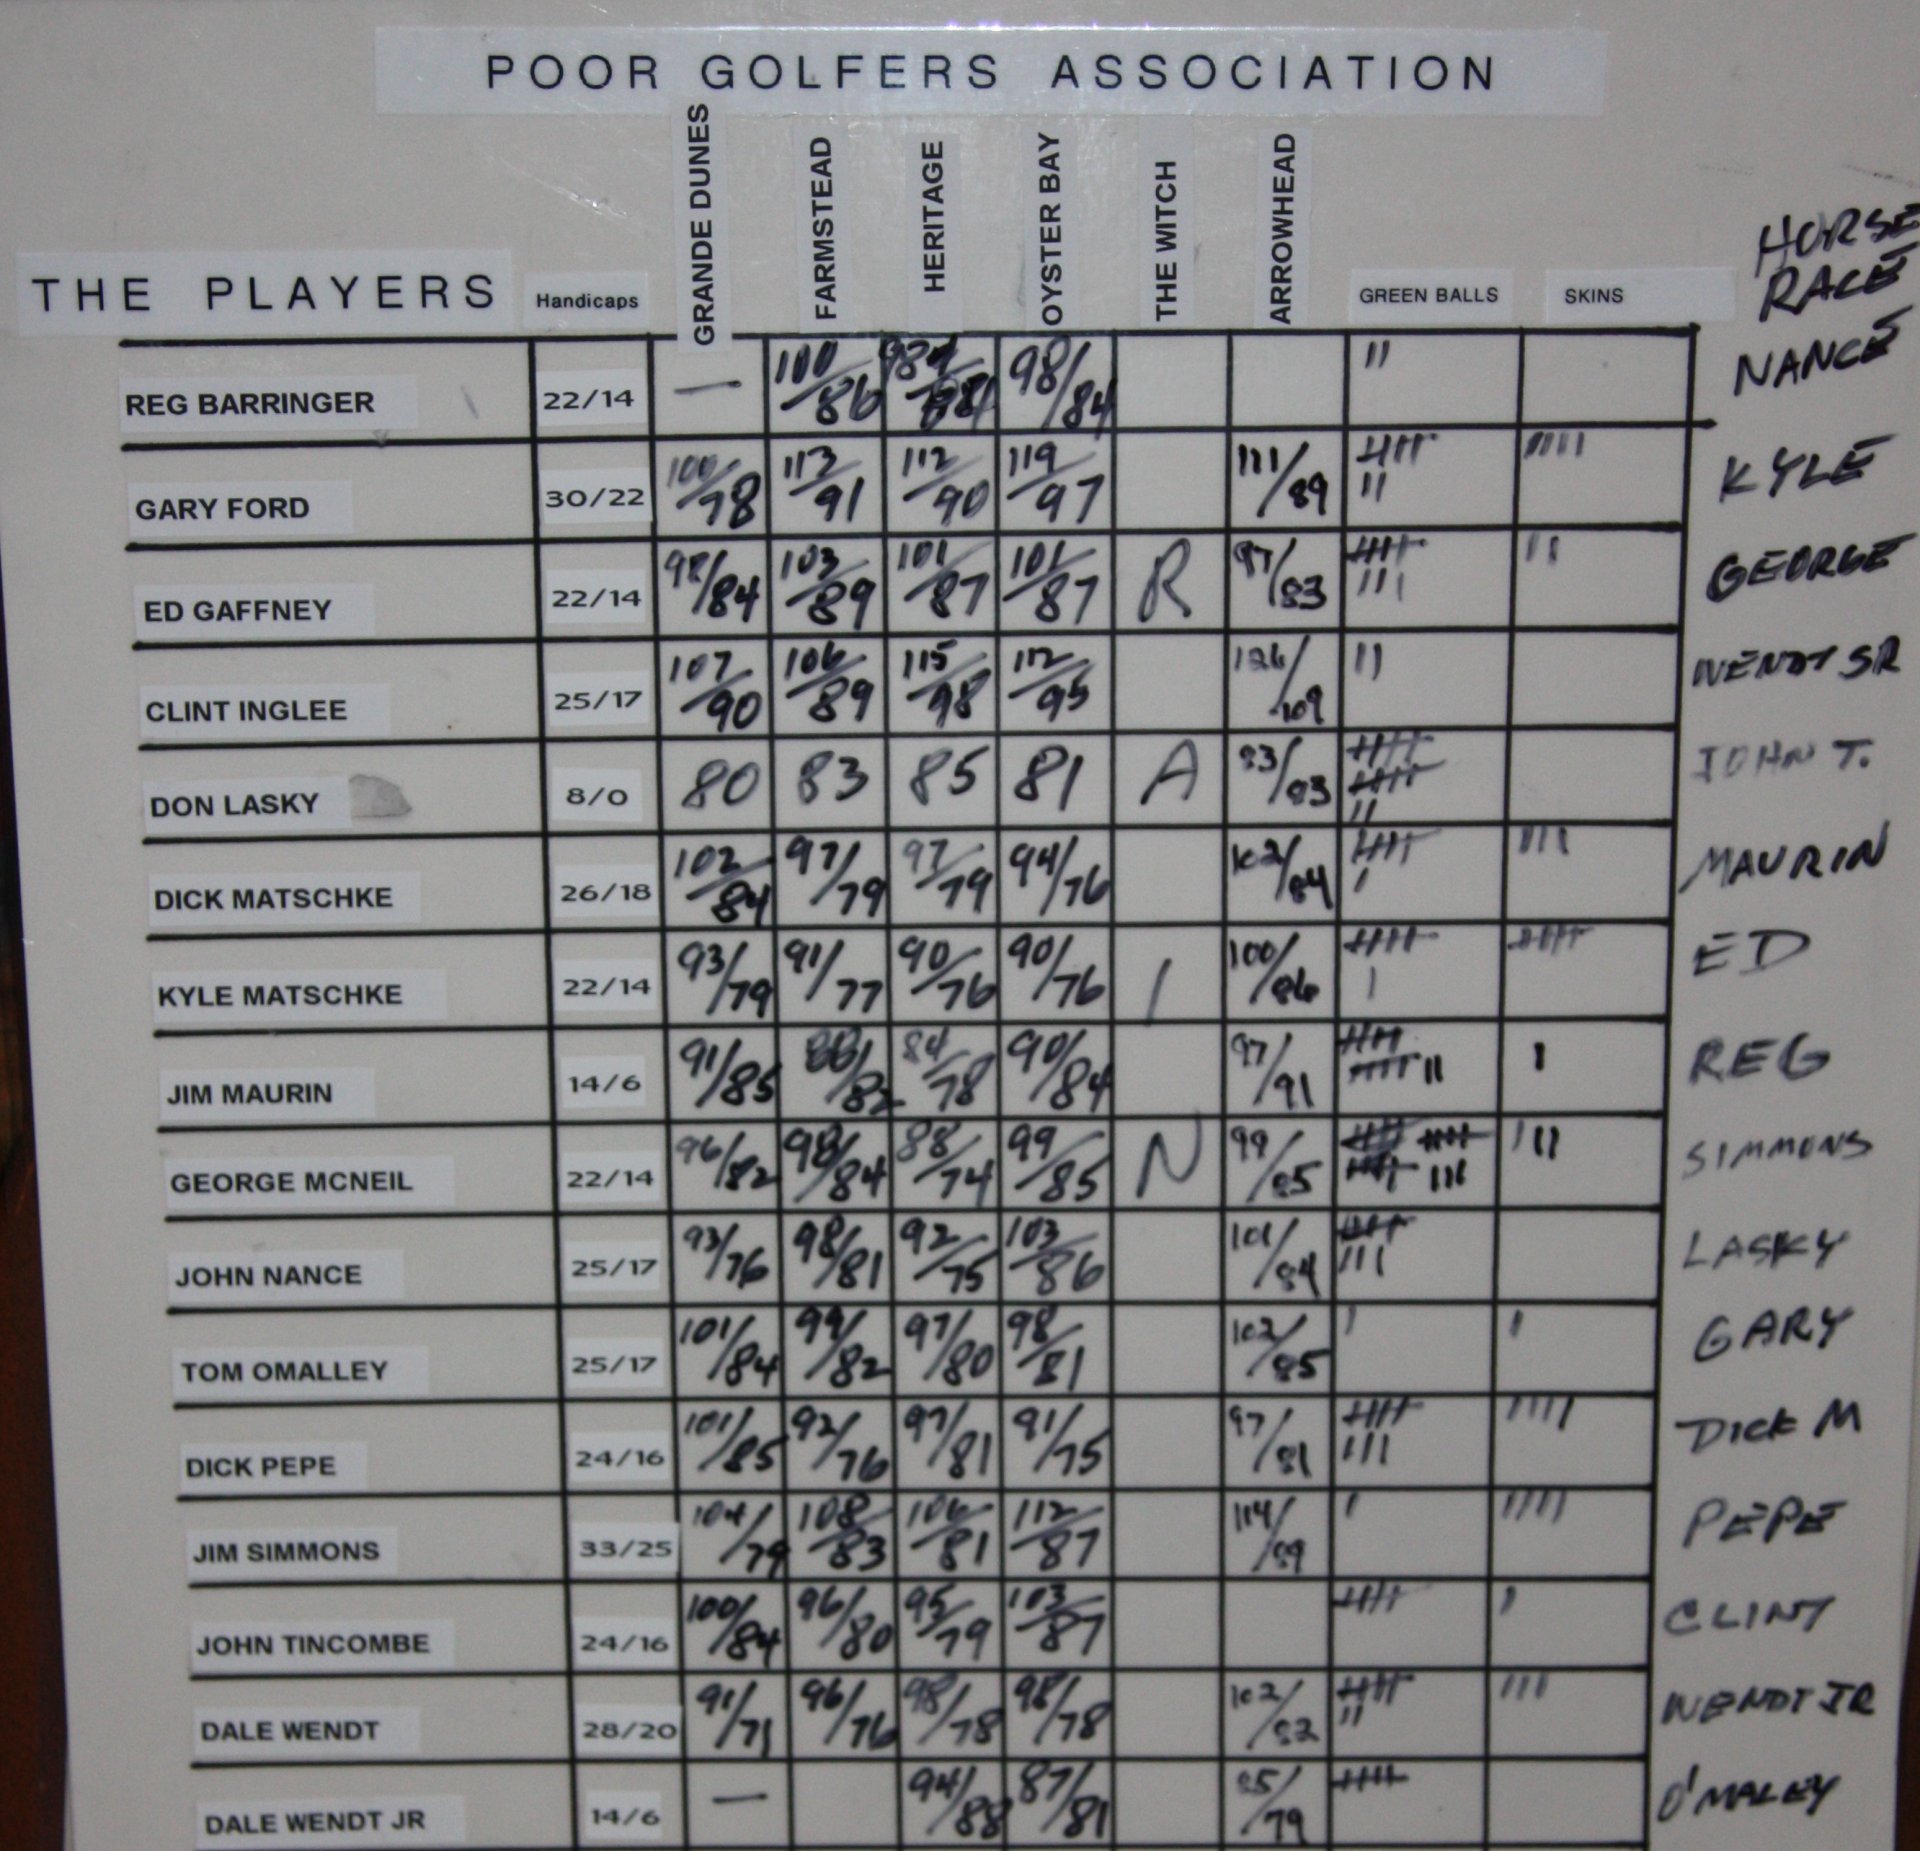 POOR GOLFERS ASSOCIATION
THE PLAYERS Handicaps GRANDE DUNES FARMSTEAD HERITAGE OYSTER BAY THE WITCH ARROWHEAD GREEN BALLS SKINS HORSE RACE
REG BARRINGER 22/14 — 100/86 98/84 98/84 II NANCE
GARY FORD 30/22 100/78 113/91 112/90 119/97 111/89 IIII II IIII KYLE
ED GAFFNEY 22/14 98/84 103/89 101/87 101/87 R 97/83 IIII III II GEORGE
CLINT INGLEE 25/17 107/90 106/89 115/98 112/95 126/109 II WENDT SR
DON LASKY 8/0 80 83 85 81 A 93/93 IIII IIII II JOHN T.
DICK MATSCHKE 26/18 102/84 97/79 97/79 94/76 102/84 IIII I III MAURIN
KYLE MATSCHKE 22/14 93/79 91/77 90/76 90/76 I 100/86 IIII I IIII ED
JIM MAURIN 14/6 91/85 88/82 84/78 90/84 97/91 IIII IIII II I REG
GEORGE MCNEIL 22/14 96/82 98/84 88/74 99/85 N 99/85 IIII IIII IIII III III SIMMONS
JOHN NANCE 25/17 93/76 98/81 92/75 103/86 101/84 IIII III LASKY
TOM OMALLEY 25/17 101/84 99/82 97/80 98/81 102/85 I I GARY
DICK PEPE 24/16 101/85 92/76 97/81 91/75 97/81 IIII III IIII DICK M
JIM SIMMONS 33/25 104/79 108/83 106/81 112/87 114/89 I IIII PEPE
JOHN TINCOMBE 24/16 100/84 96/80 95/79 103/87 IIII I CLINT
DALE WENDT 28/20 91/71 96/76 98/78 98/78 102/82 IIII II III WENDT JR
DALE WENDT JR 14/6 — 94/88 87/81 85/79 IIII O'MALEY